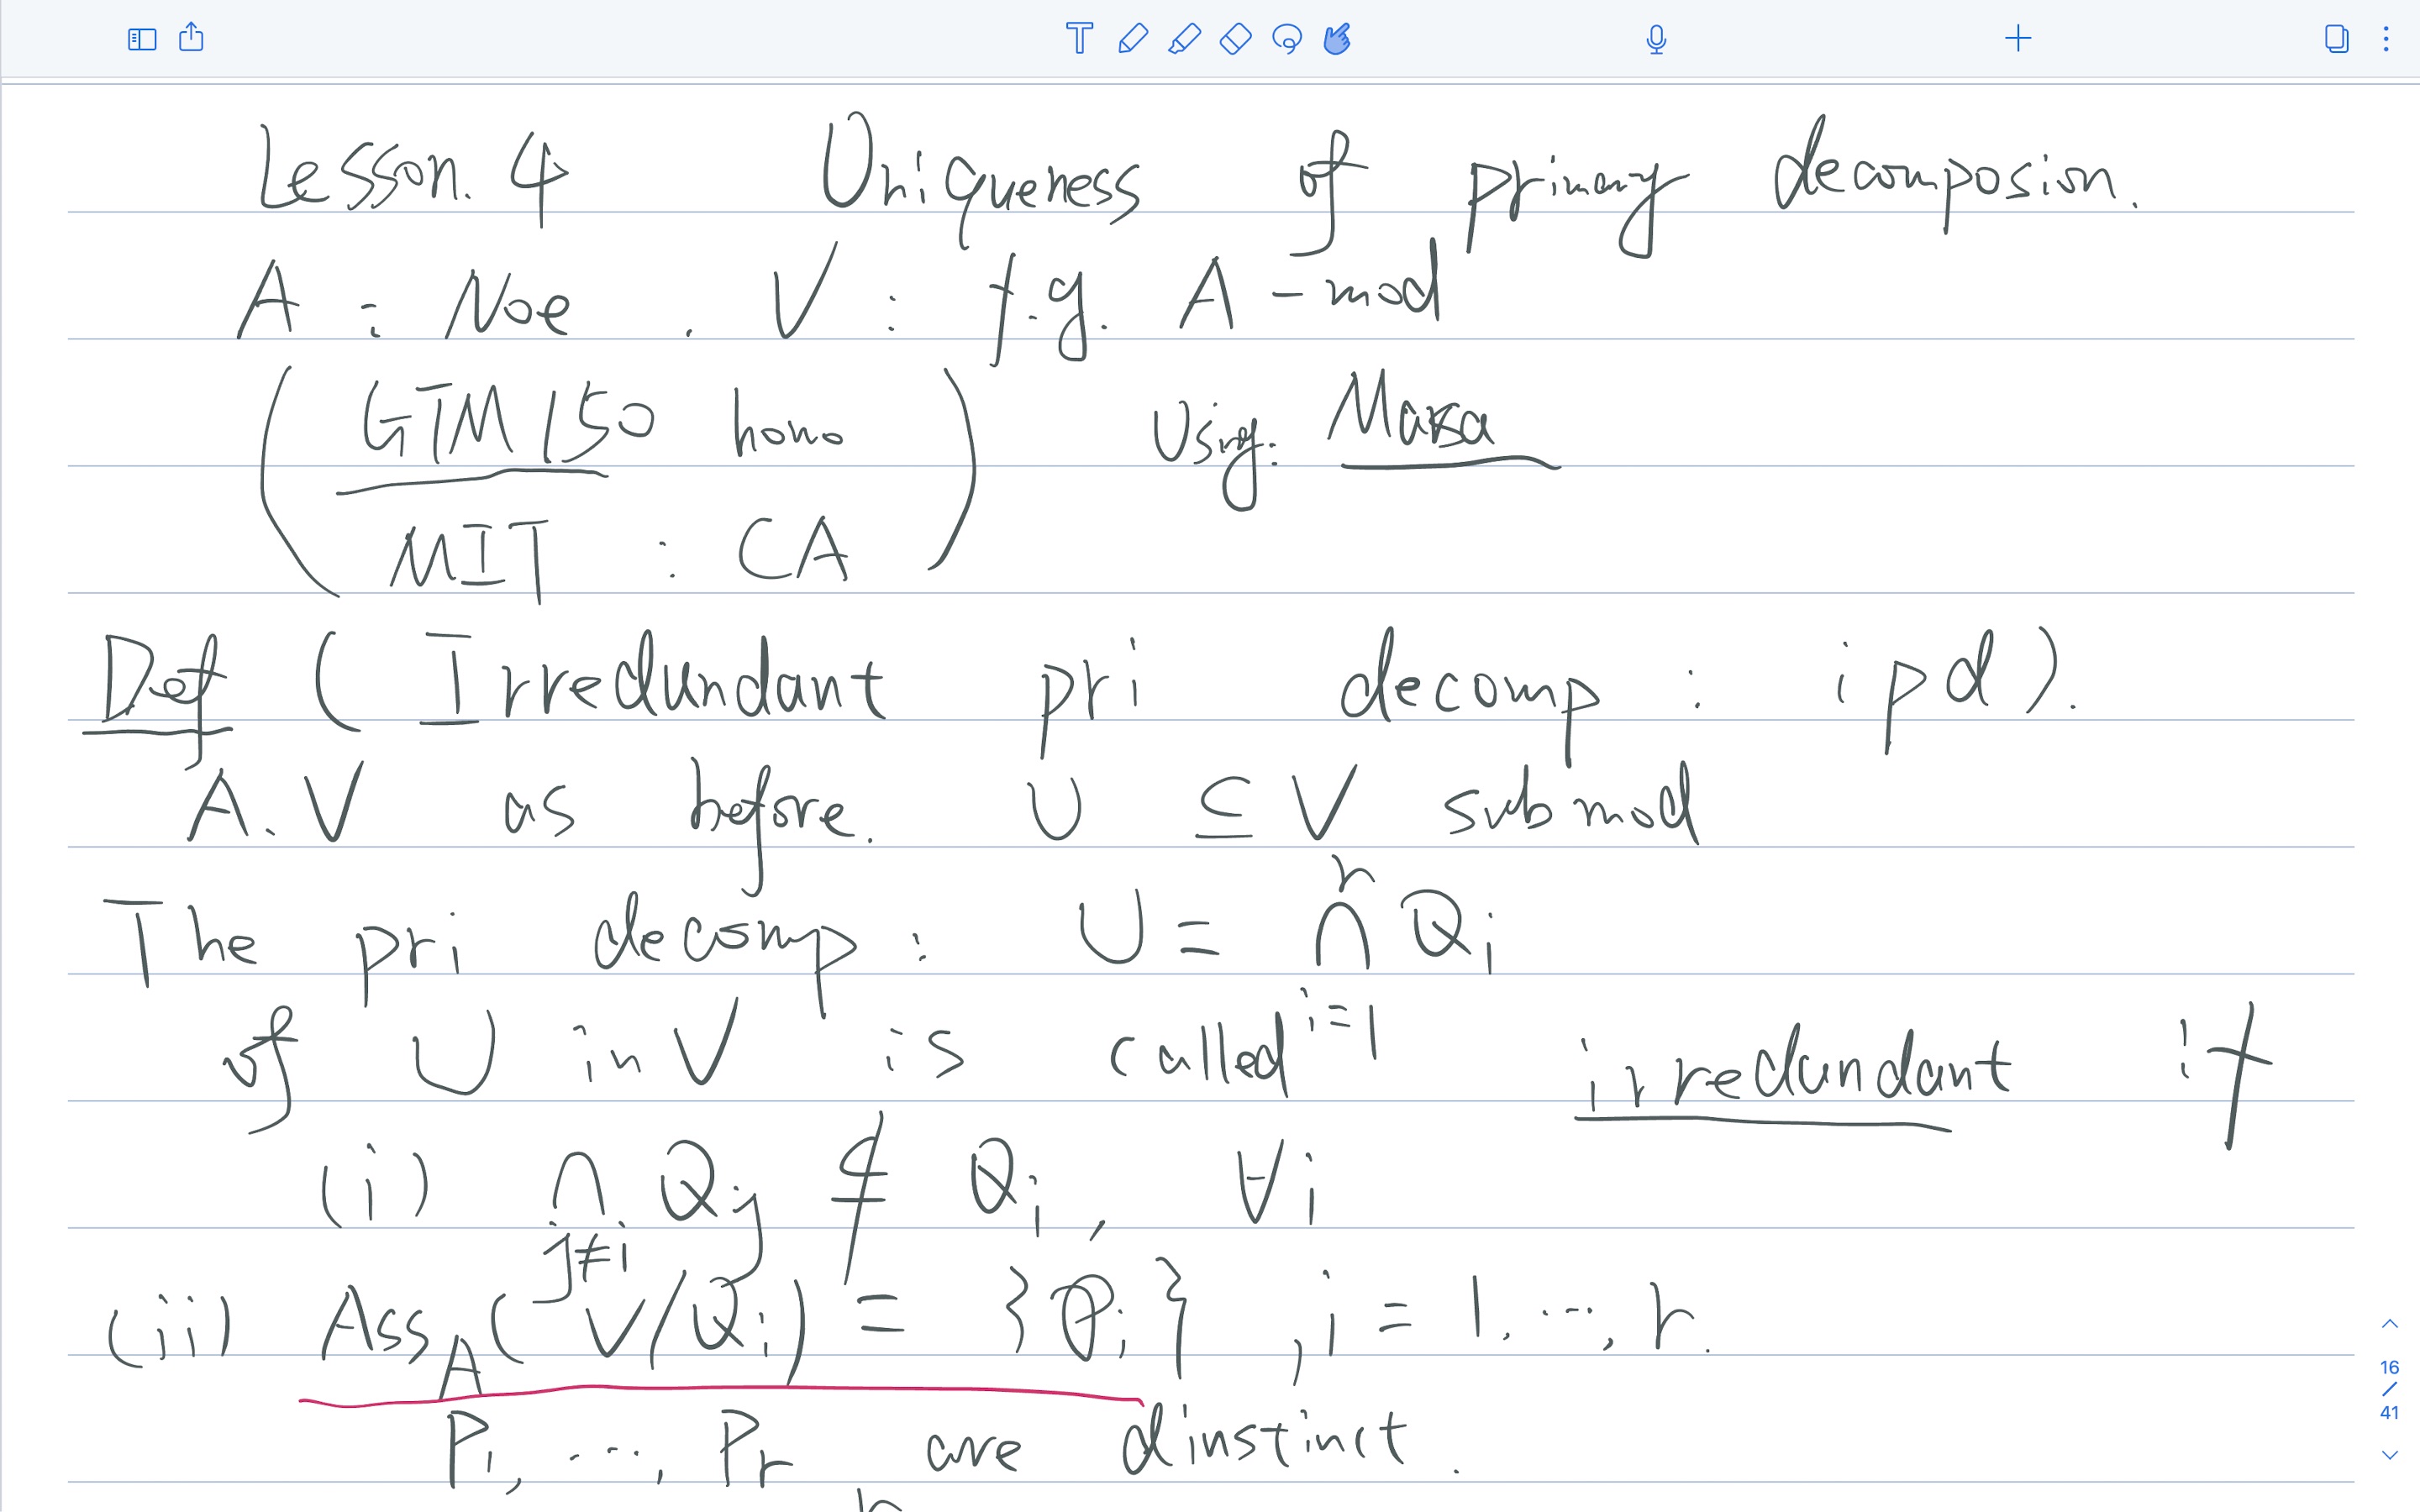 Lesson. 4 Uniqueness of primary decomposion.
A : Noe . V : f.g. A - mod
( GTM 150 homo Using: Massa
MIT : CA )
Def ( Irredundant pri decomp : ipd ).
A. V as before. U ⊆ V submod
The pri decomp : U = ⋂_{i=1}^{r} Q_i
of U in V is called irredundant if
(i) ⋂_{j≠i} Q_j ⊈ Q_i , ∀i
(ii) Ass_A (V/Q_i) = {P_i} , i = 1, ..., r.
P_1, ..., P_r are dinstinct.
16
/
41